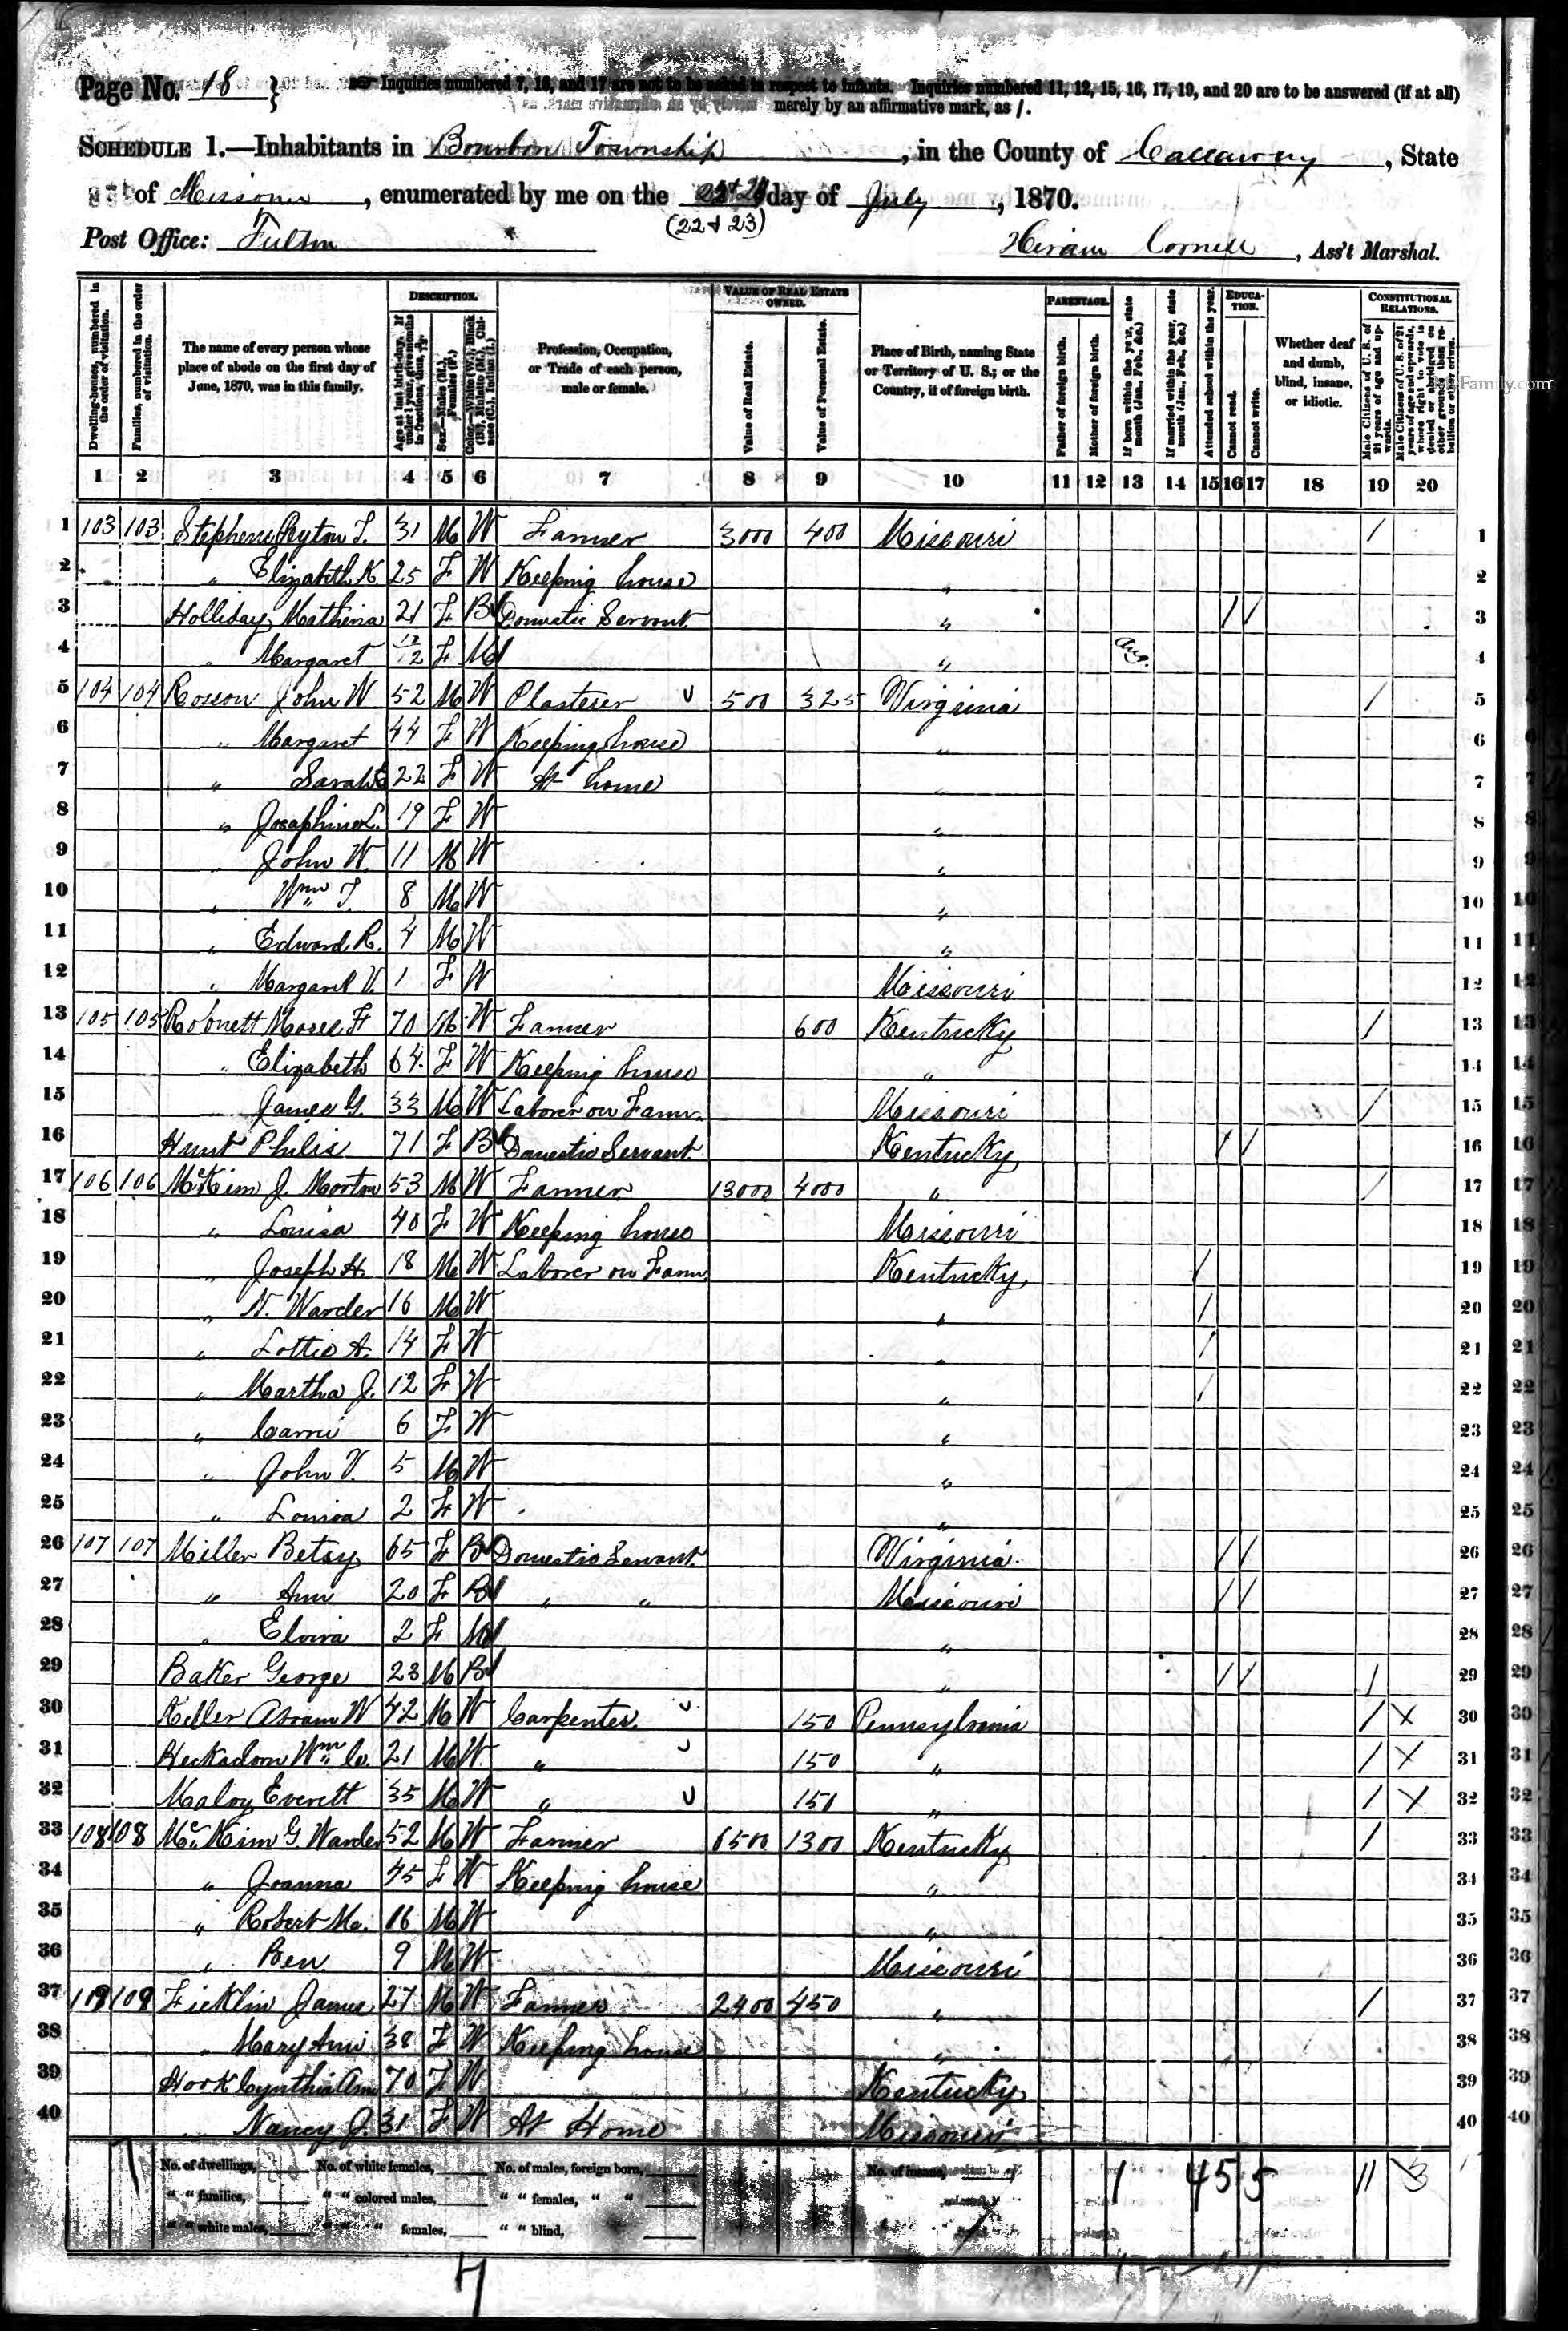 Page No. 18 } Inquiries numbered 7, 16, and 17 are not to be asked in respect to infants. Inquiries numbered 11, 12, 15, 16, 17, 19, and 20 are to be answered (if at all)
merely by an affirmative mark, as /.
SCHEDULE 1.—Inhabitants in Bourbon Township, in the County of Callaway, State
of Missouri, enumerated by me on the day of July, 1870.
(22 & 23)
Post Office: Fulton Hiram Cornell, Ass't Marshal.
Dwelling-houses, numbered in the order of visitation.
Families, numbered in the order of visitation.
The name of every person whose place of abode on the first day of June, 1870, was in this family.
DESCRIPTION.
Age at last birth-day. If under 1 year, give months in fractions, thus, 3/12
Sex.—Males (M.), Females (F.)
Color.—White (W.), Black (B.), Mulatto (M.), Chinese (C.), Indian (I.)
Profession, Occupation, or Trade of each person, male or female.
VALUE OF REAL ESTATE OWNED.
Value of Real Estate.
Value of Personal Estate.
Place of Birth, naming State or Territory of U. S.; or the Country, if of foreign birth.
PARENTAGE.
Father of foreign birth.
Mother of foreign birth.
If born within the year, state month (Jan., Feb., &c.)
If married within the year, state month (Jan., Feb., &c.)
Attended school within the year.
EDUCATION.
Cannot read.
Cannot write.
Whether deaf and dumb, blind, insane, or idiotic.
CONSTITUTIONAL RELATIONS.
Male Citizens of U. S. of 21 years of age and upwards.
Male Citizens of U. S. of 21 years of age and upwards, whose right to vote is denied or abridged on other grounds than rebellion or other crime.
Family.com
1 2 3 4 5 6 7 8 9 10 11 12 13 14 15 16 17 18 19 20
1 103 103 Stephens Peyton T. 31 M W Farmer 3000 400 Missouri / 1
2 " Elizabeth K 25 F W Keeping house " 2
3 Holliday Mathina 21 F B Domestic Servant " / / 3
4 " Margaret 12/12 F M " Aug. 4
5 104 104 Rosson John W 52 M W Plasterer 500 325 Virginia / 5
6 " Margaret 44 F W Keeping house " 6
7 " Sarah E 22 F W At home " 7
8 " Josephine L. 19 F W " 8
9 " John W. 11 M W " 9
10 " Wm T. 8 M W " 10
11 " Edward R. 4 M W " 11
12 " Margaret V. 1 F W Missouri 12
13 105 105 Robnett Moses F 70 M W Farmer 600 Kentucky / 13
14 " Elizabeth 64 F W Keeping house " 14
15 " James G. 33 M W Laborer on Farm Missouri / 15
16 Hunt Philis 71 F B Domestic Servant Kentucky / / 16
17 106 106 McKim J. Morton 53 M W Farmer 13000 4000 " / 17
18 " Louisa 40 F W Keeping house Missouri 18
19 " Joseph H. 18 M W Laborer on Farm Kentucky / 19
20 " N. Warder 16 M W " / 20
21 " Lottie A. 14 F W " / 21
22 " Martha J. 12 F W " / 22
23 " Carrie 6 F W " 23
24 " John V. 5 M W " 24
25 " Louisa 2 F W " 25
26 107 107 Miller Betsy 65 F B Domestic Servant Virginia / / 26
27 " Ann 20 F B " " Missouri / / 27
28 " Elvira 2 F M " 28
29 Baker George 23 M B " / / / 29
30 Keller Abram W 42 M W Carpenter 150 Pennsylvania / X 30
31 Heckadorn Wm C. 21 M W " 150 " / X 31
32 Maloy Everett 35 M W " 151 " / X 32
33 108 108 McKim G. Warder 52 M W Farmer 6500 1300 Kentucky / 33
34 " Joanna 45 F W Keeping house " 34
35 " Robert Mc. 16 M W " 35
36 " Ben 9 M W Missouri 36
37 109 109 Ficklin James 27 M W Farmer 2400 450 " / 37
38 " Mary Ann 38 F W Keeping house " 38
39 Hook Cynthia Ann 70 F W Kentucky 39
40 " Nancy J. 31 F W At Home Missouri 40
No. of dwellings, No. of white females, No. of males, foreign born, No. of insane, 1 4 5 5 11 3
" " families, " " colored males, " " females, " "
" " white males, " " " females, " " blind,
7